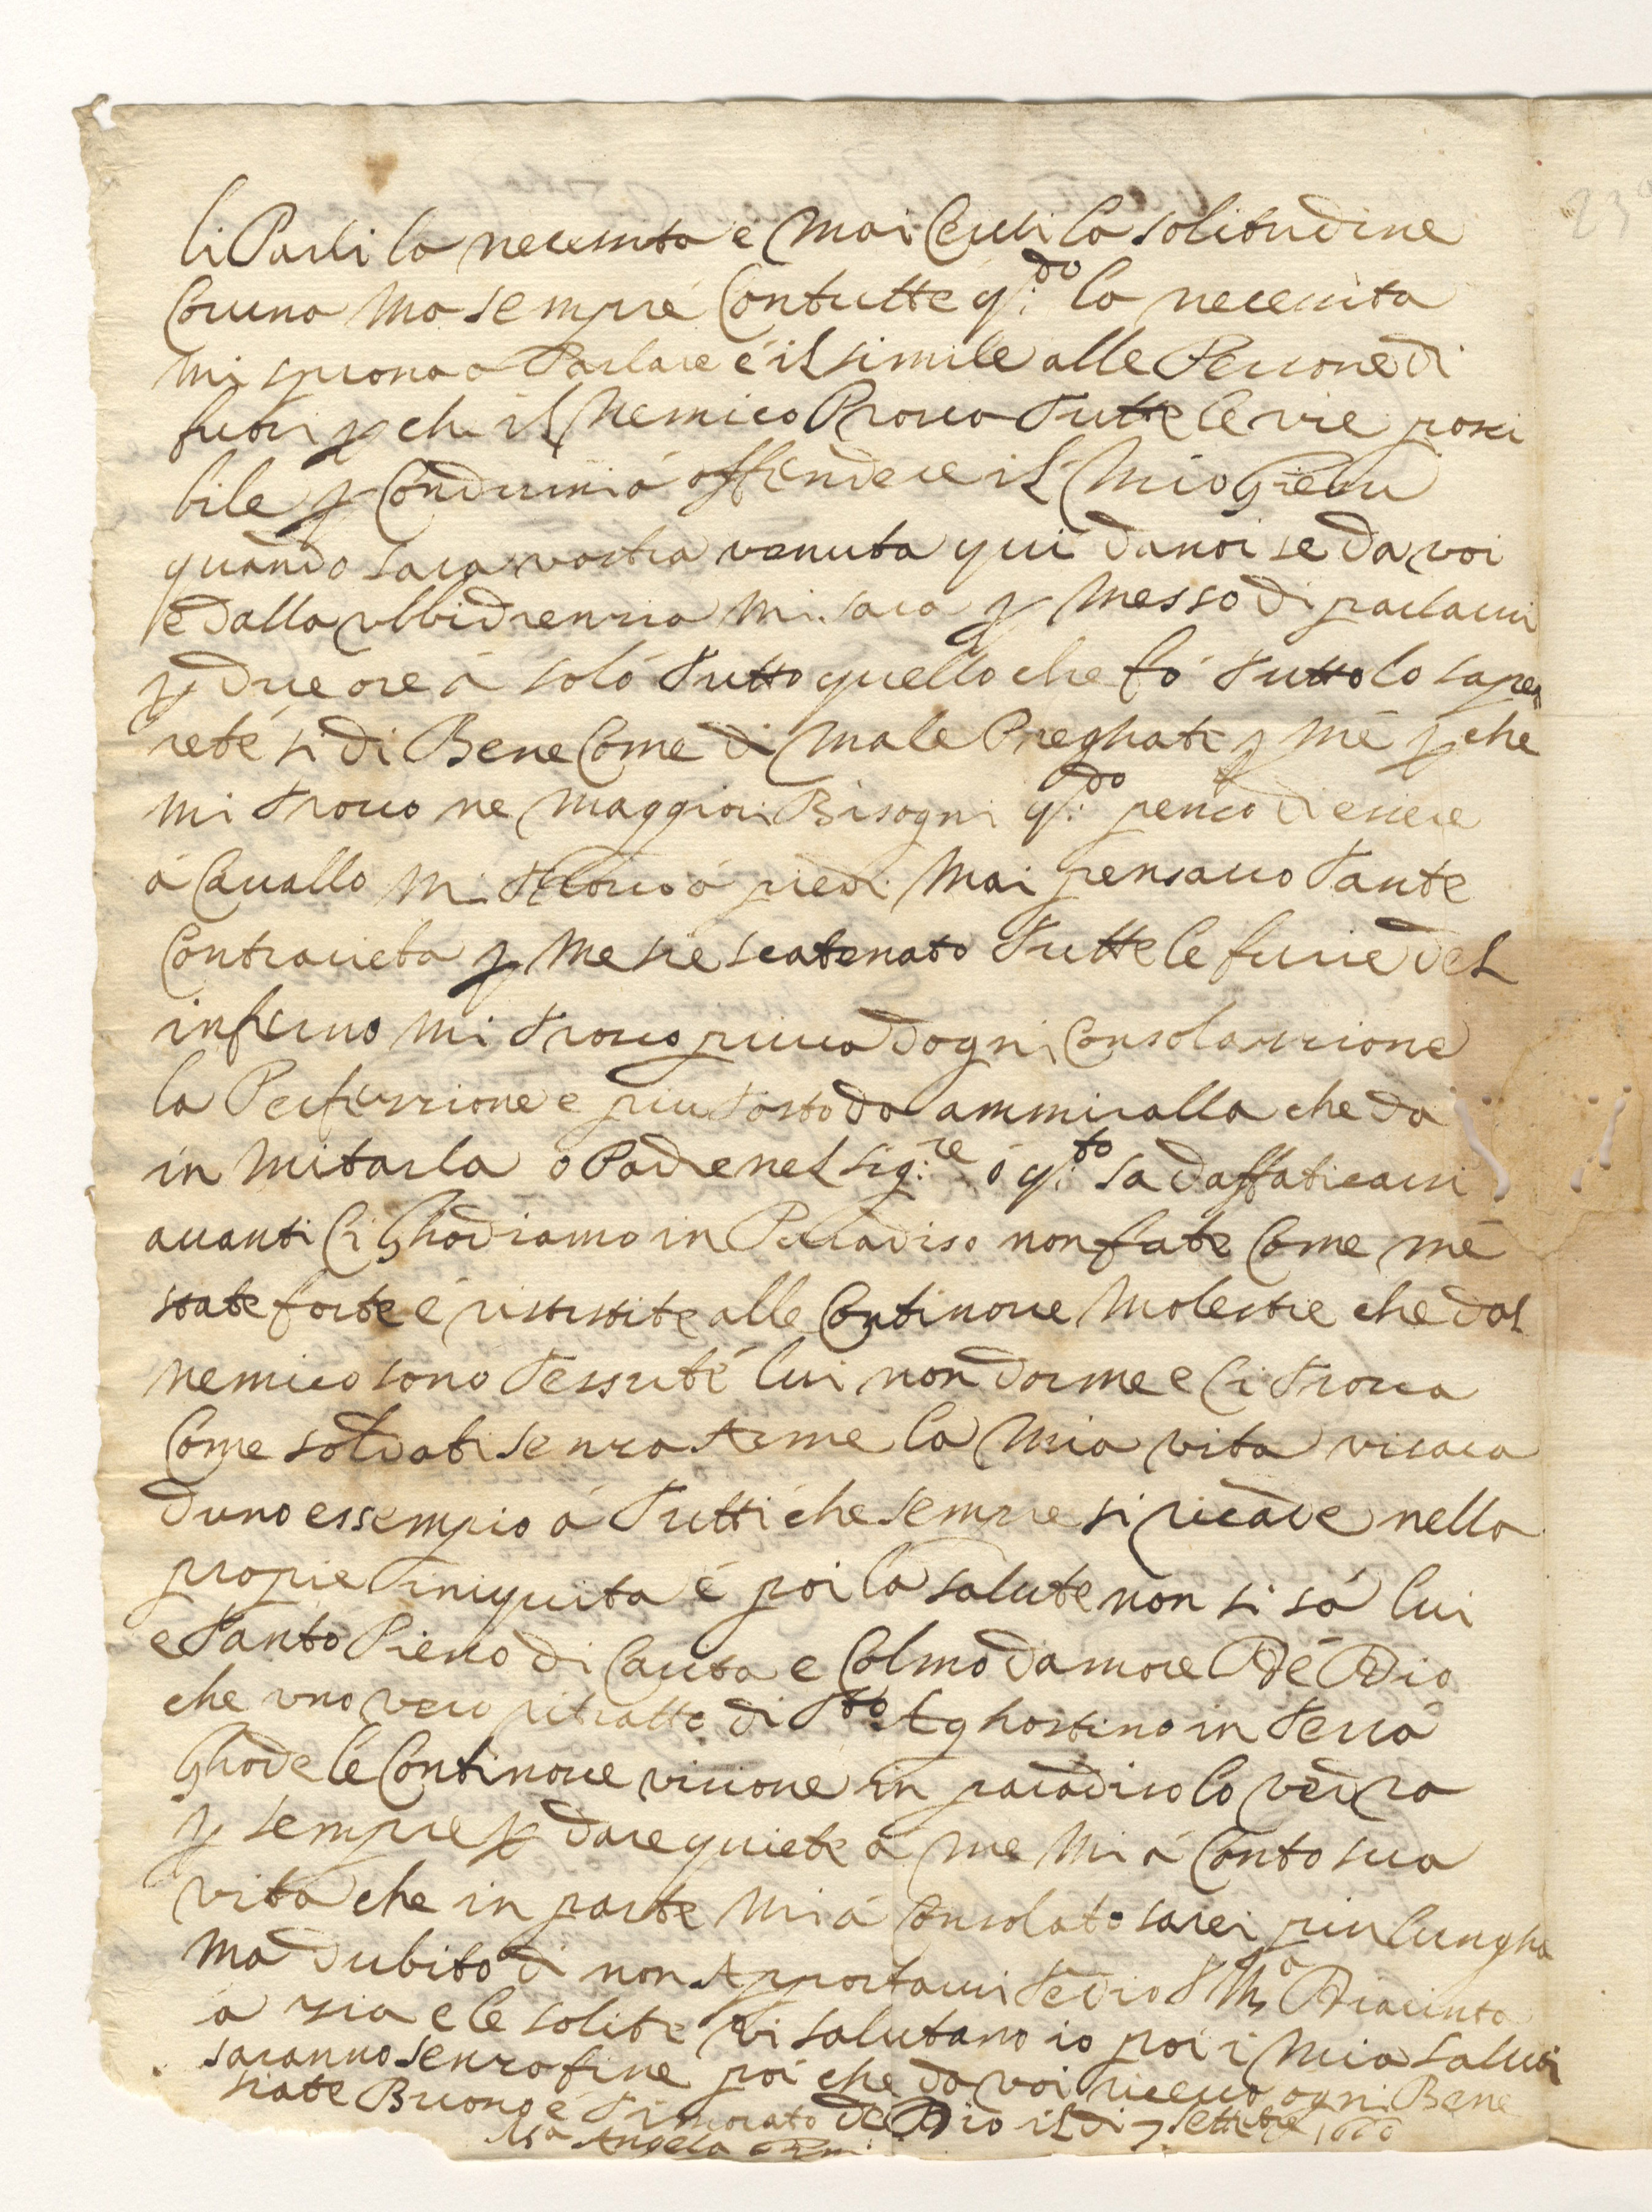 li Parli la necessita e mai Cerchi la solitudine
Con una ma sempre Con tutte q.do la necessita
mi sprona a Parlare è il simile alle Persone di
fuori p che il Nemico Prova Tutte le vie possi
bile p Condurmi á offendere il Mio Giesu
quando sara vostra venuta qui da noi se da voi
e dalla ubbidienzia mi sara p messo di parlarvi
p due ore á solo Tutto quello che fó Tutto lo sape
rete si di Bene Come di Male Preghate p mé p che
mi Trovo ne maggiori Bisogni q.do penso di essere
á Cavallo mi Trovo á piedi Mai pensavo Tante
Contrarieta p me sie scatenato Tutte le furie del
inferno mi Trovo priva dogni Consolazzione
la Perfezzione e piu Tosto da ammiralla che da
in mitarla ó Padre nel Sig.re ó q.to sa daffaticarsi
avanti Ci Ghodiamo in Paradiso non fate Come mé
state forte é rissistite alle Continove Molestie che dal
nemico sono Tessuté lui non dorme e Ci Trova
Come soldati senza Arme la Mia vita vi sara
duno essempio á Tutti che sempre si ricade nella
propie iniquita é poi la salute non si sá lui
e Tanto Pieno di Carita e Colmo damore De Dio
che uno vero ritratto di Sto Aghostino in Terra
Ghode le Continove visione in paradiso lo vedra
p sempre p dare quiete a me mi á Conto sua
vita che in parte mi á Consolato sarei piu lungha
ma dubito di non Apportarvi Tedio S Ma Diacinta
a zia e le solite vi salutano io poi i mia saluti
saranno senza fine poi che da voi ricevo ogni Bene
siate Buono é Timorato de Dio il di 7 settebre
Sa Angela